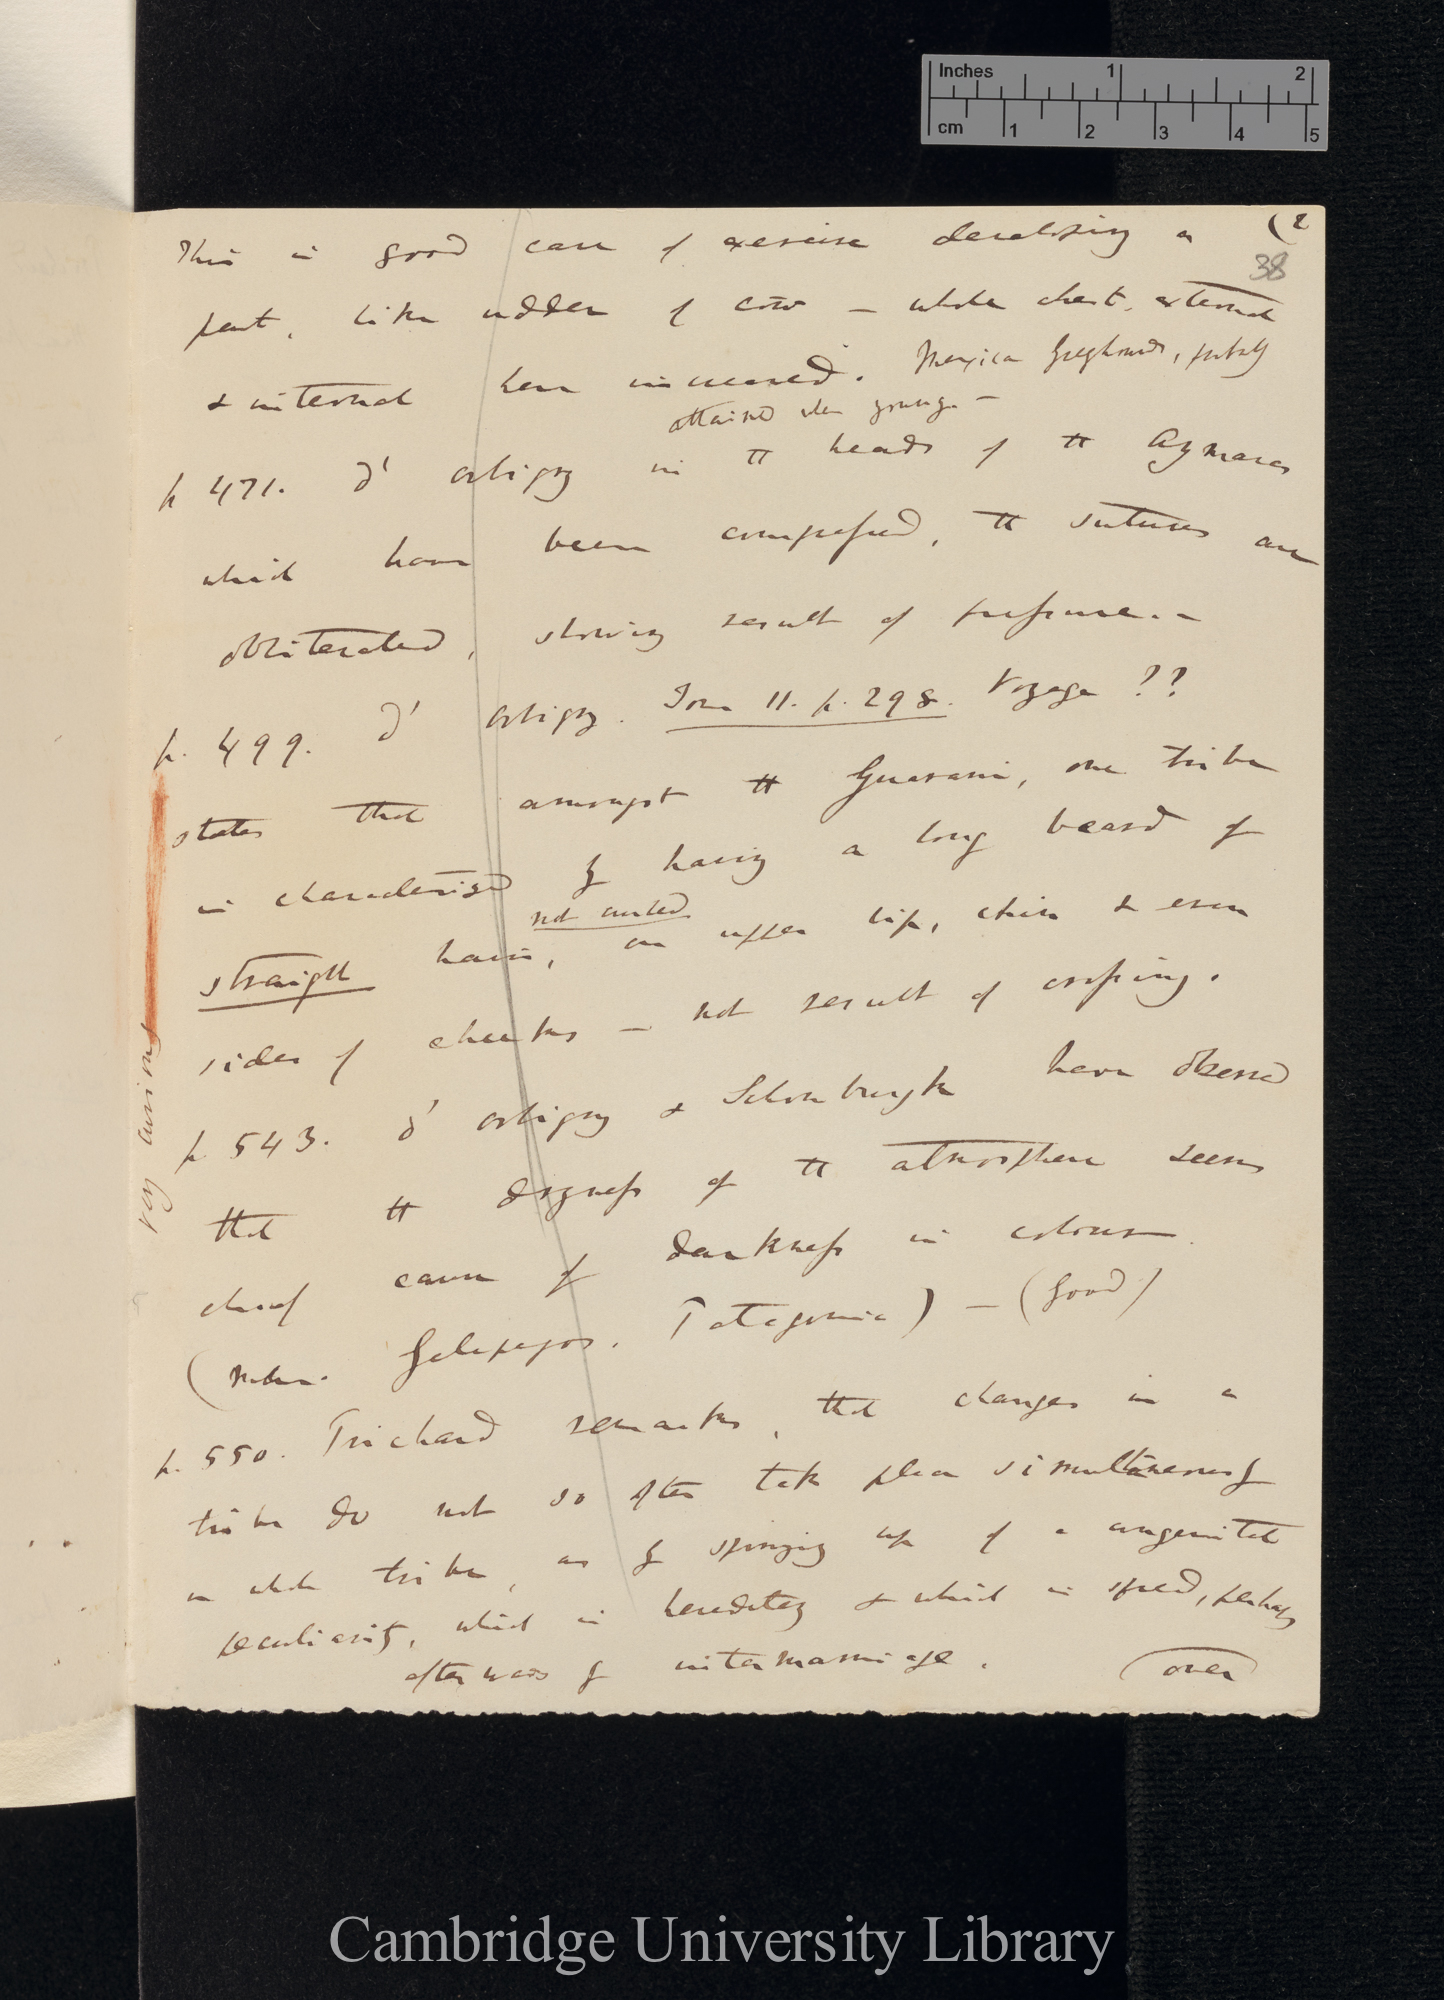 Inches 1 2
cm 1 2 3 4 5
(2
38
This is good case of exercise developing a
part, like udder of cow — whole chest, external
& internal been increased. Mexican Greyhounds, probably
attained when young —
p 471. d' orbigny in the heads of the Aymaras
which have been compressed, the sutures are
obliterated, showing result of pressure. —
p. 499. D' orbigny. Tom 11. p. 298. Voyage ??
states that amongst the Guarani, one tribe
is characterised by having a long beard of
not curled
straight hair, on upper lip, chin & even
sides of cheeks — not result of crossing.
very curious
p 543. d' orbigny & Schomburgk have observed
that the dryness of the atmosphere seems
chief cause of darkness in colour
( Galapagos. Patagonia) — (Good)
p. 550. Prichard remarks, that changes in a
tribe do not so often take place simultaneously
in whole tribe, as by springing up of a congenital
peculiarity, which is hereditary & which is spread, perhaps
afterwards by intermarriage.
(over)
Cambridge University Library